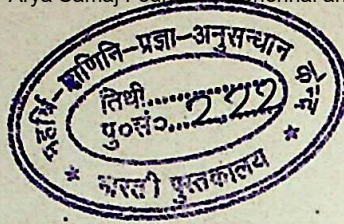 Arya Samaj
महर्षि-पाणिनि-प्रज्ञा-अनुसन्धान
तिथी..............
पु०सं०...222
* भारती पुस्तकालय *